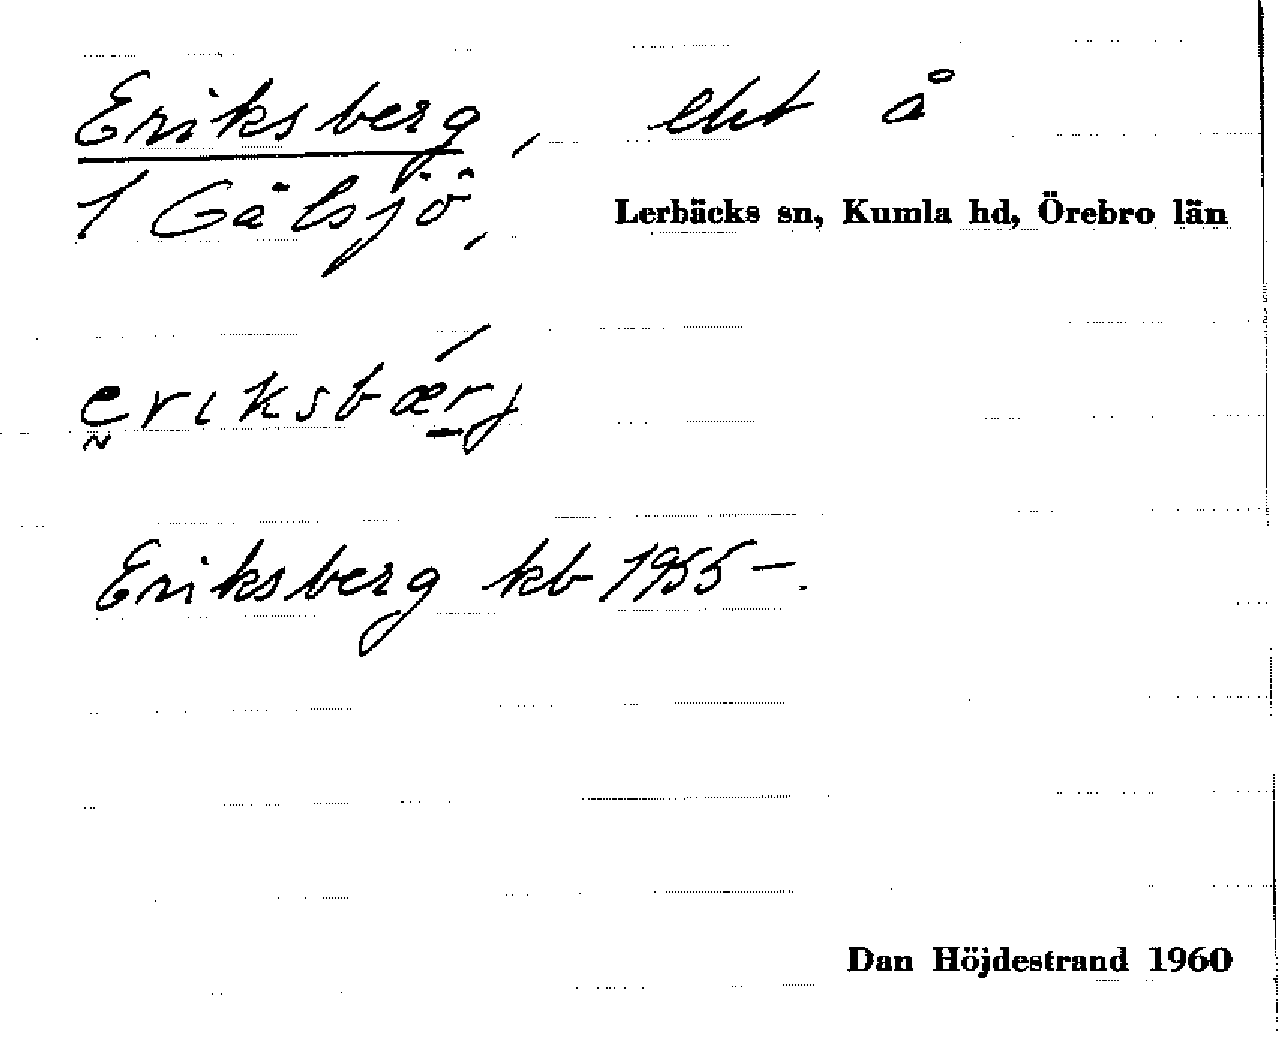 Eriksberg, eht å
1 Gålsjö, Lerbäcks sn, Kumla hd, Örebro län
eriksbærj
Eriksberg kb 1955-.
Dan Höjdestrand 1960